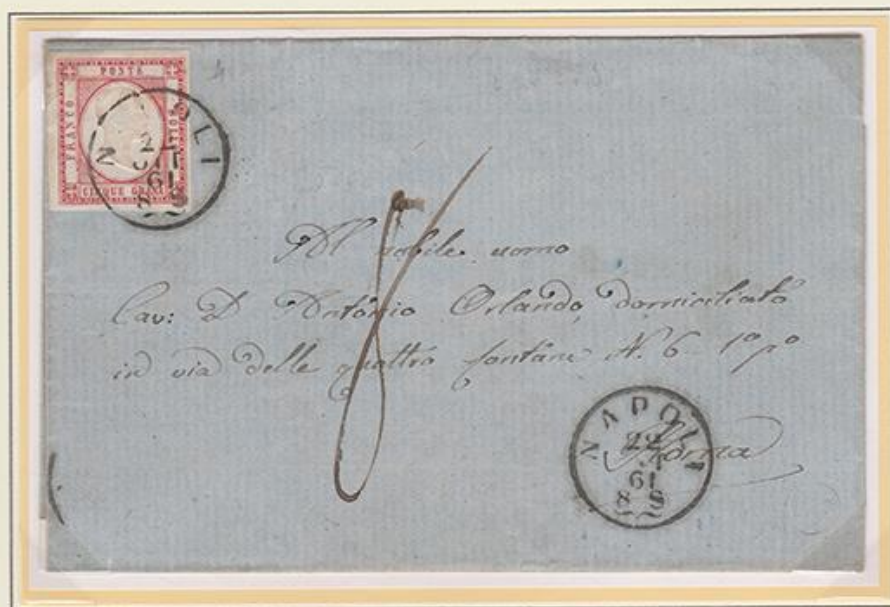 POSTE
FRANCO
BOLLO
CINQUE GRANA
NAPOLI
22
61
8 S
8
Al nobile uomo
Cav: D Antonio Orlando, domiciliato
in via delle quattro fontane N. 6 1º pº
Roma
NAPOLI
22
61
8 S